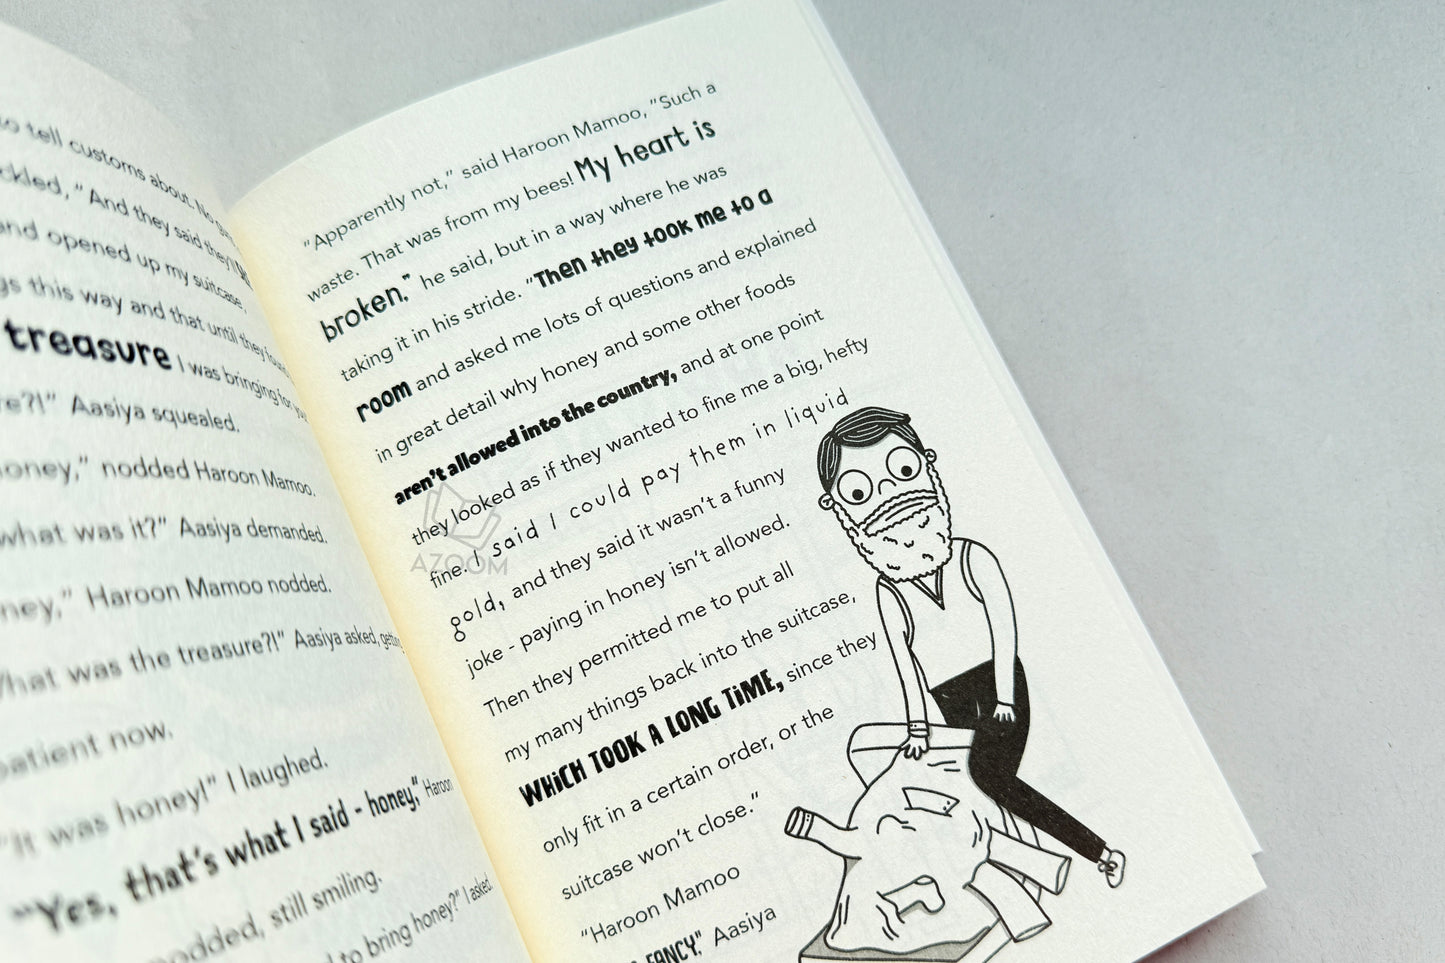 to tell customs about. No
ckled, "And they said they'll
and opened up my suitcase.
gs this way and that until they found
treasure I was bringing for you
re?!" Aasiya squealed.
honey," nodded Haroon Mamoo.
what was it?" Aasiya demanded.
ney," Haroon Mamoo nodded.
What was the treasure?!" Aasiya asked, getting
patient now.
"It was honey!" I laughed.
"Yes, that's what I said - honey," Haroon
nodded, still smiling.
d to bring honey?" I asked.
"Apparently not," said Haroon Mamoo, "Such a
waste. That was from my bees! My heart is
broken," he said, but in a way where he was
taking it in his stride. "Then they took me to a
room and asked me lots of questions and explained
in great detail why honey and some other foods
aren't allowed into the country, and at one point
they looked as if they wanted to fine me a big, hefty
fine. I said I could pay them in liquid
gold, and they said it wasn't a funny
joke - paying in honey isn't allowed.
Then they permitted me to put all
my many things back into the suitcase,
WHiCH TOOK A LONG TiME, since they
only fit in a certain order, or the
suitcase won't close."
"Haroon Mamoo
FANCY." Aasiya
AZOOM